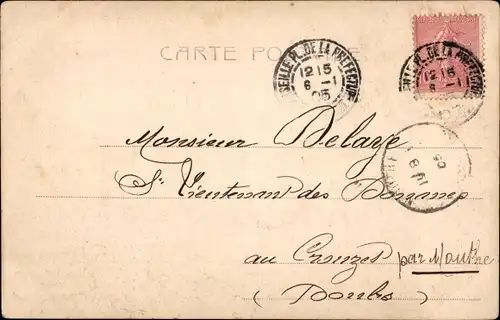 CARTE PO
MARSEILLE PL. DE LA PREFECTURE
12 15
6 -1
05
MARSEILLE PL. DE LA PREFECTURE
12 15
6 -1
Monsieur Delaye
S/s Lieutenant des Douanes
au Crouzet par Mouthe
(Doubs)